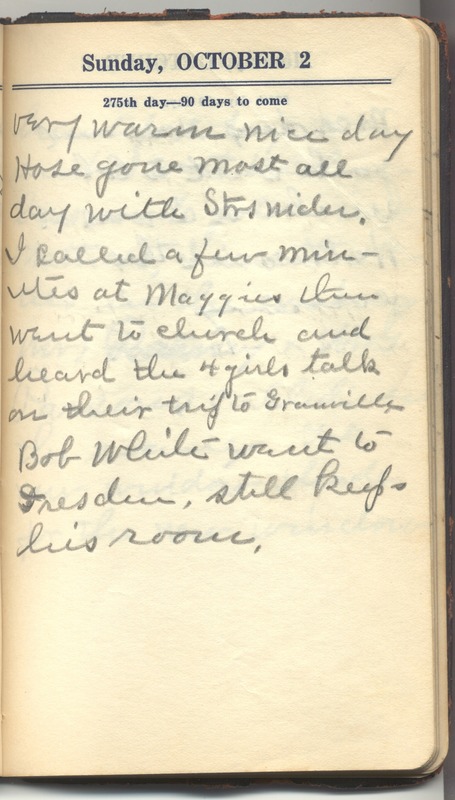 Sunday, OCTOBER 2
275th day—90 days to come
very warm nice day
Hose gone most all
day with Strsnider.
I called a few min-
utes at Maggies then
went to church and
heard the 4 girls talk
on their trip to Granville
Bob White went to
Dresden, still keeps
his room.